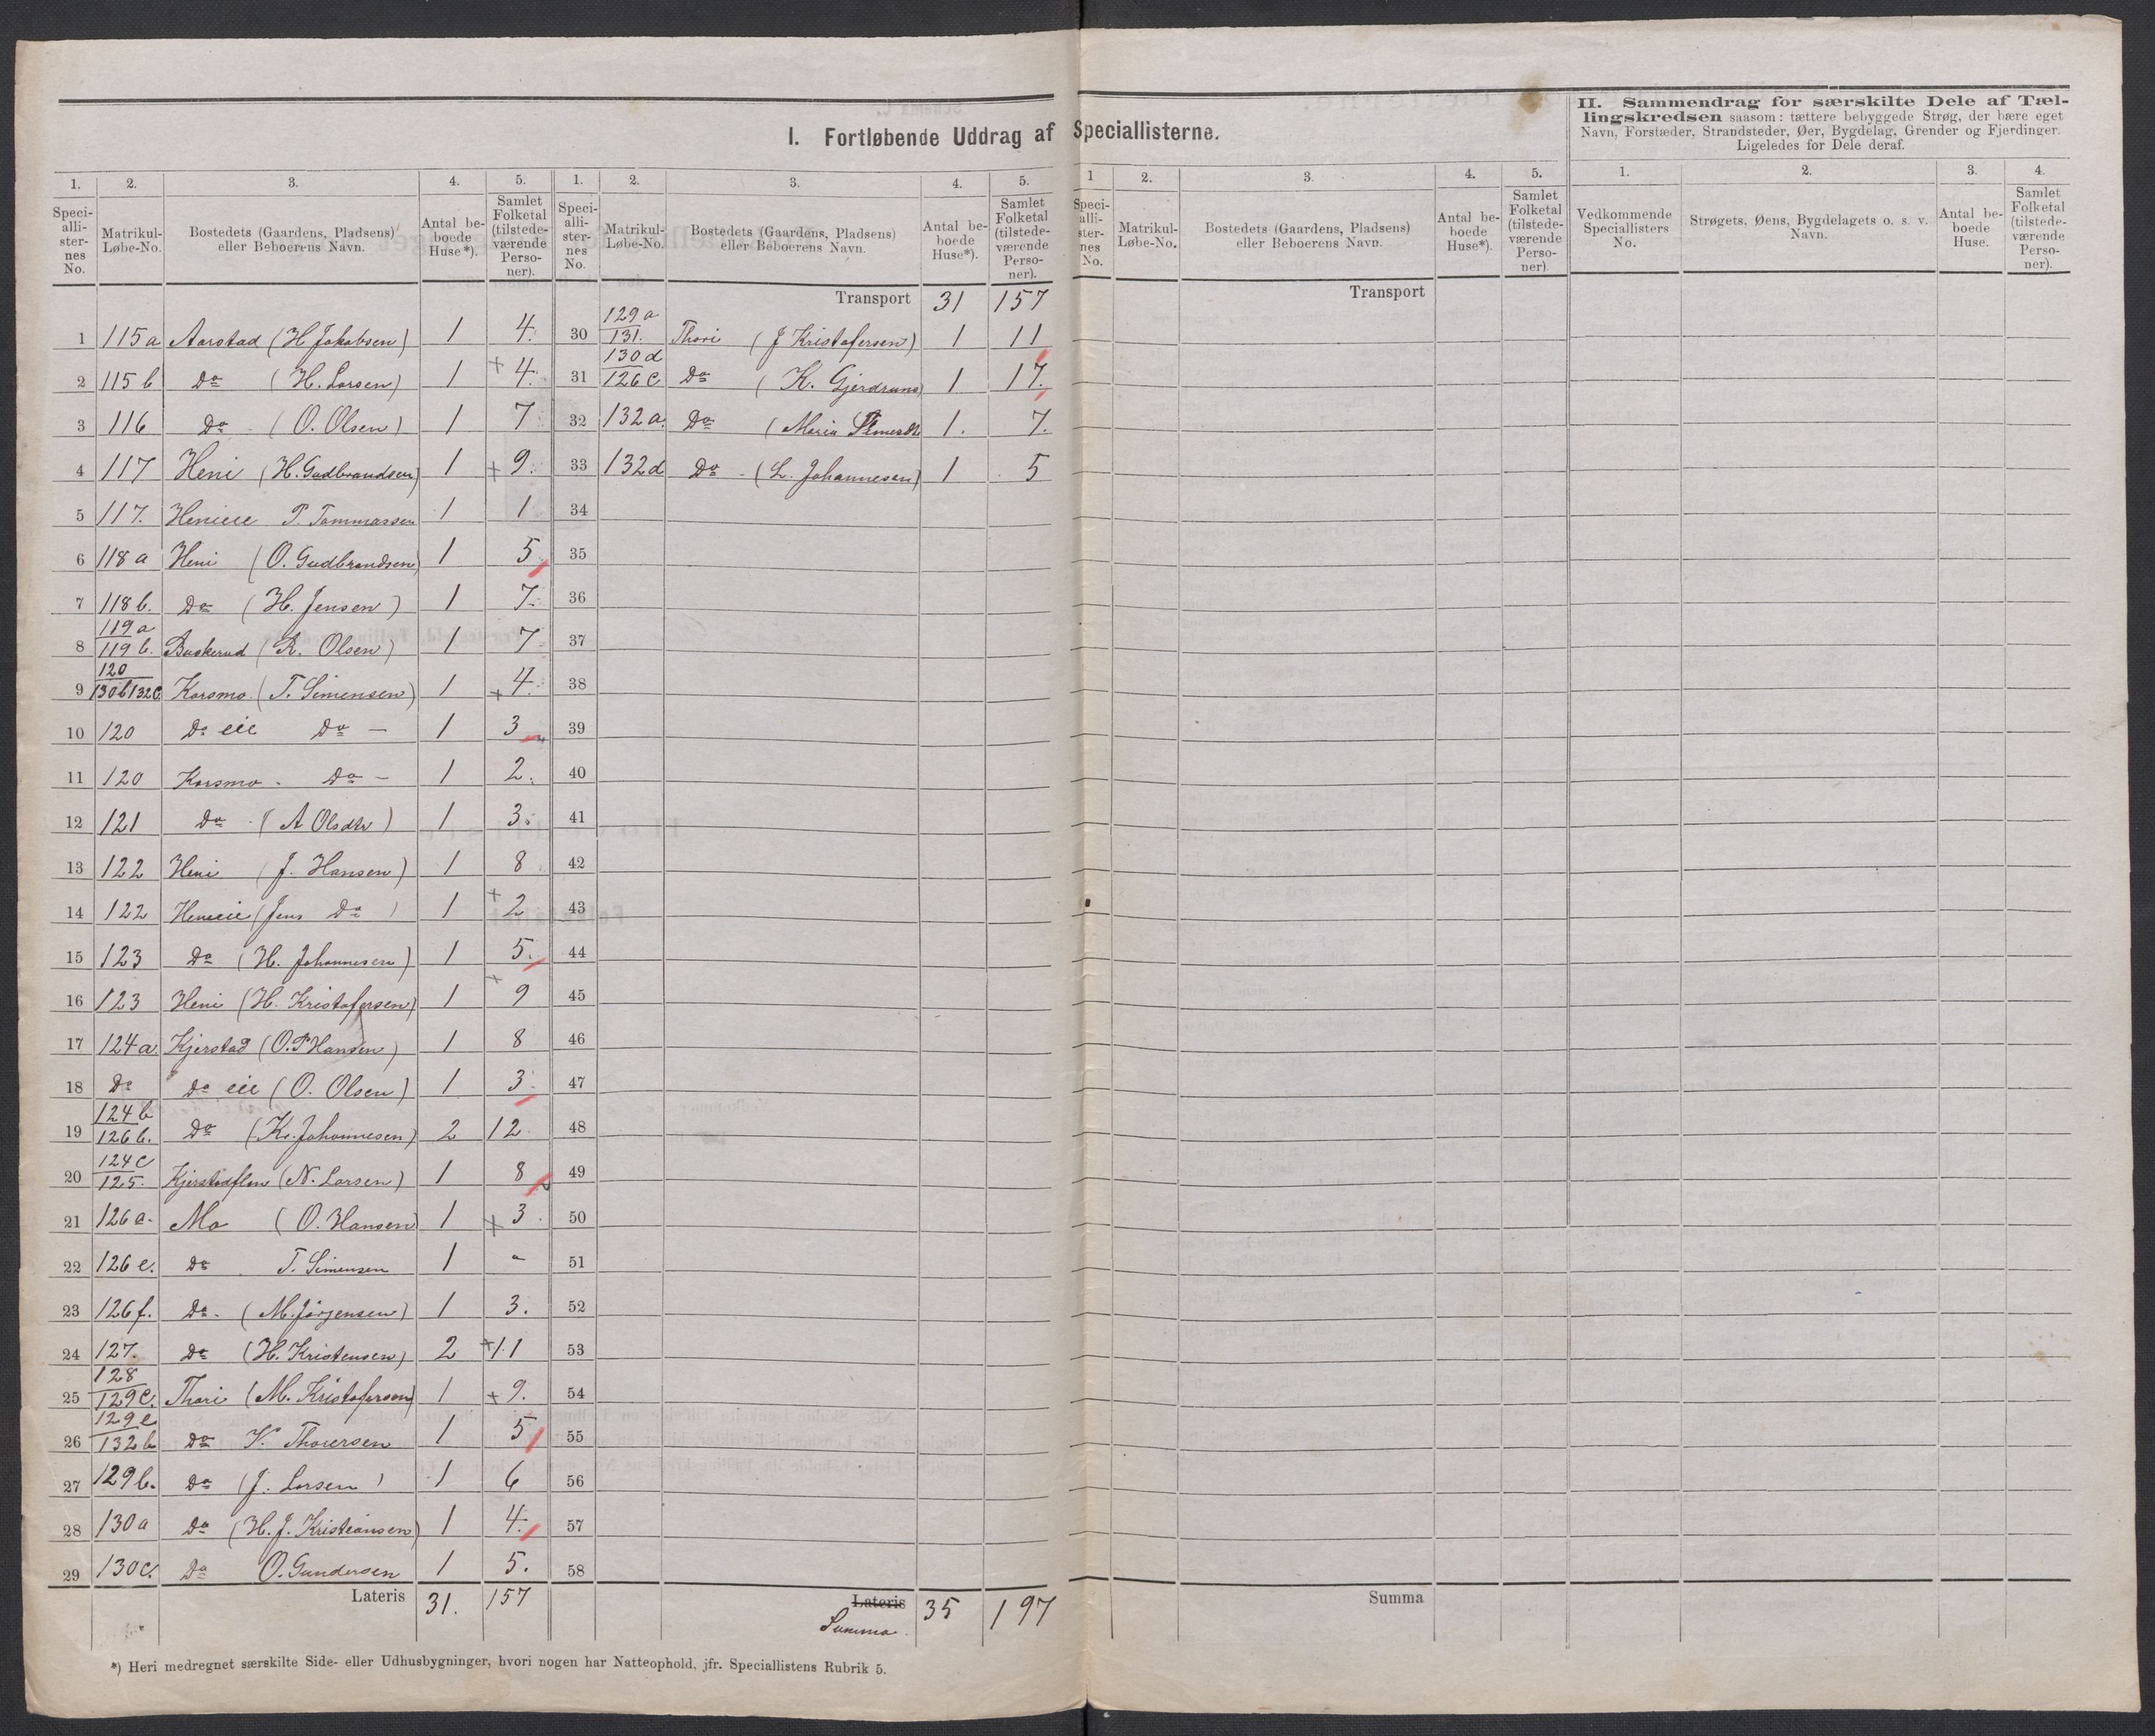 I. Fortløbende Uddrag af Speciallisterne.
II. Sammendrag for særskilte Dele af Tæl-
lingskredsen saasom: tættere bebyggede Strøg, der bære eget
Navn, Forstæder, Strandsteder, Øer, Bygdelag, Grender og Fjerdinger.
Ligeledes for Dele deraf.
1. 2. 3. 4. 5. 1. 2. 3. 4. 5. 1 2. 3. 4. 5. 1. 2. 3. 4.
Speci-
alli-
ster-
nes
No.
Matrikul-
Løbe-No.
Bostedets (Gaardens, Pladsens)
eller Beboerens Navn.
Antal be-
boede
Huse*).
Samlet
Folketal
(tilstede-
værende
Perso-
ner).
Speci-
alli-
ster-
nes
No.
Matrikul-
Løbe-No.
Bostedets (Gaardens, Pladsens)
eller Beboerens Navn.
Antal be-
boede
Huse*).
Samlet
Folketal
(tilstede-
værende
Perso-
ner).
Speci-
alli-
ster-
nes
No.
Matrikul-
Løbe-No.
Bostedets (Gaardens, Pladsens)
eller Beboerens Navn.
Antal be-
boede
Huse*).
Samlet
Folketal
(tilstede-
værende
Perso-
ner).
Vedkommende
Speciallisters
No.
Strøgets, Øens, Bygdelagets o. s. v.
Navn.
Antal be-
boede
Huse.
Samlet
Folketal
(tilstede-
værende
Perso-
ner).
1 115a Aarstad (H Jakobsen) 1 4.
2 115b Do (H. Larsen) 1 + 4.
3 116 Do (O. Olsen) 1 7
4 117 Heni (H. Gudbrandsen) 1 + 9.
5 117. Henieie P. Tommassen 1 1
6 118a Heni (O. Gudbrandsen) 1 5
7 118b. Do (H. Jensen) 1 7.
8 119a 119b. Buskerud (R. Olsen) 1 7
9 120 130b132c Korsmo. (T. Simensen) 1 + 4.
10 120 Do eie Do - 1 3
11 120 Korsmo - Do - 1 2.
12 121 Do (A Olsdtr) 1 3.
13 122 Heni (J. Hansen) 1 8
14 122 Henieie (Jens Do) 1 + 2
15 123 Do (H. Johannesen) 1 5.
16 123 Heni (H. Kristofersen) 1 + 9
17 124a. Kjerstad (O. P Hansen) 1 8
18 Do Do eie (O. Olsen) 1 3.
19 124b 126b. Do (Kr. Johannesen) 2 12
20 124c 125. Kjerstadflen (N. Larsen) 1 8
21 126a. Mo (O. Hansen) 1 + 3
22 126e. Do T. Simensen 1 -
23 126f. Do. (M. Jörgensen) 1 3.
24 127. Do (H. Kristensen) 2 + 11
25 128 129c. Thori (M. Kristofersen) 1 + 9.
26 129e 132b Do K. Thoresen 1 5
27 129b. Do (J. Larsen) 1 6
28 130a Do (H. J. Kristiansen) 1 4.
29 130c. Do O. Gundersen 1 5.
Lateris 31. 157
Transport 31 157
30 129a 131. Thori (J Kristofersen) 1 11
31 130d 126c Do (K. Gjerdrum) 1 17.
32 132a. Do (Maria 1. 7.
33 132d Do - (L. Johannesen) 1 5
34
35
36
37
38
39
40
41
42
43
44
45
46
47
48
49
50
51
52
53
54
55
56
57
58
Lateris 35 197
Summa.
Transport
Summa
*) Heri medregnet særskilte Side- eller Udhusbygninger, hvori nogen har Natteophold, jfr. Speciallistens Rubrik 5.